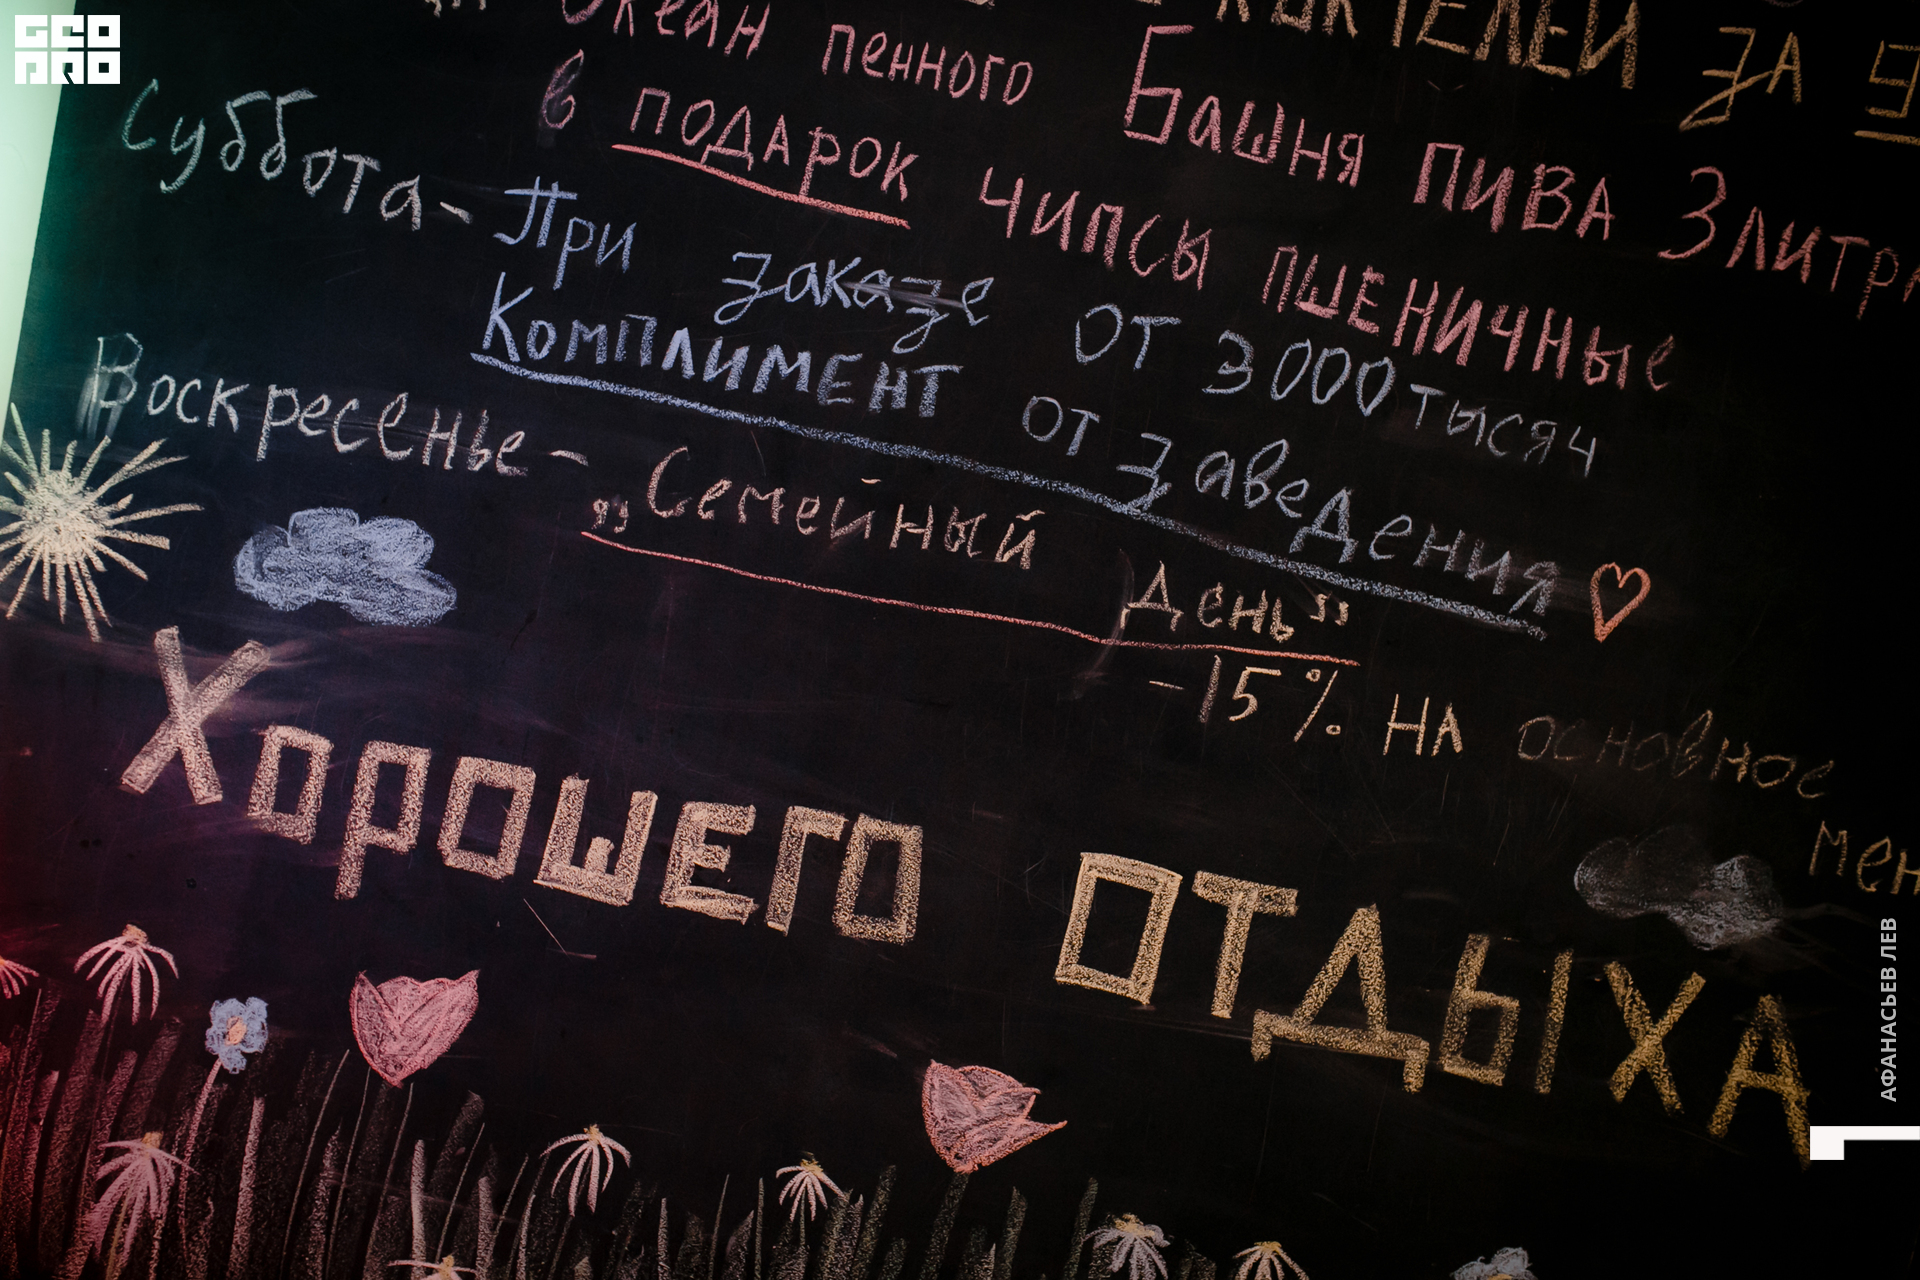 GEO
PRO
КОКТЕЛЕЙ ЗА
Океан пенного Башня ПИВА 3 литра
в подарок чипсы пшеничные
Суббота - При заказе от 3000 тысяч
Комплимент от заведения
Воскресенье - „Семейный день"
-15% на основное
мен
Хорошего отдыха
АФАНАСЬЕВ ЛЕВ